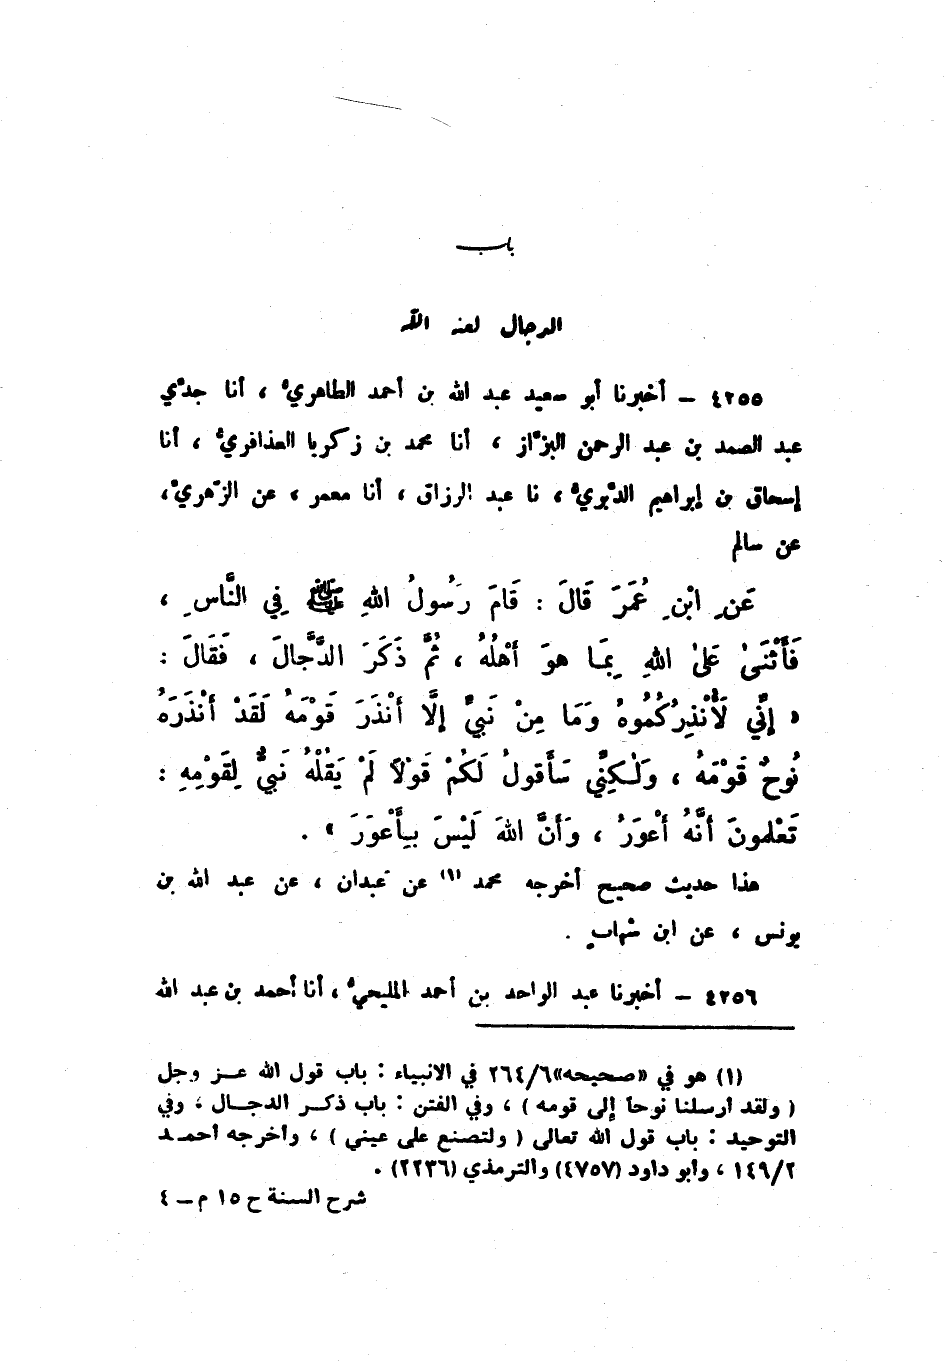 باب
الدجال لعنه الله
٤٢٥٥ – أخبرنا أبو سعيد عبد الله بن أحمد الطاهريُّ ، أنا جدّي
عبد الصمد بن عبد الرحمن البزَّاز ، أنا محمد بن زكريا العذافريُّ ، أنا
إسحاق بن إبراهيم الدَّبَريُّ ، نا عبد الرزاق ، أنا معمر ، عن الزُّهريِّ ،
عن سالم
عَنِ ابْنِ عُمَرَ قَالَ : قَامَ رَسُولُ اللهِ ﷺ فِي النَّاسِ ،
فَأَثْنَىٰ عَلىٰ اللهِ بِمَا هوَ أَهْلُهُ ، ثُمَّ ذَكَرَ الدَّجَّالَ ، فَقَالَ :
« إِنِّي لَأُنْذِرُكُمُوهُ وَمَا مِنْ نَبيٍّ إلَّا أَنْذَرَ قَوْمَهُ لَقَدْ أَنْذَرَهُ
نُوحٌ قَوْمَهُ ، وَلٰكِنِّي سَأَقولُ لَكُمْ قَوْلاً لَمْ يَقُلْهُ نَبيٌّ لِقَوْمِهِ :
تَعْلمونَ أَنَّهُ أَعْوَرُ ، وَأَنَّ اللهَ لَيْسَ بِأَعْوَرَ » .
هذا حديث صحيح أخرجه محمد (١) عن عَبدان ، عن عبد الله بن
يونس ، عن ابن شهابٍ .
٤٢٥٦ – أخبرنا عبد الواحد بن أحمد المليحيُّ ، أنا أحمد بن عبد الله
(١) هو في «صحيحه» ٢٦٤/٦ في الانبياء : باب قول الله عز وجل
( ولقد أرسلنا نوحاً إلى قومه ) ، وفي الفتن : باب ذكر الدجال ، وفي
التوحيد : باب قول الله تعالى ( ولتصنع على عيني ) ، وأخرجه أحمد
١٤٩/٢ ، وأبو داود (٤٧٥٧) والترمذي (٢٢٣٦) .
شرح السنة ح ١٥ م – ٤